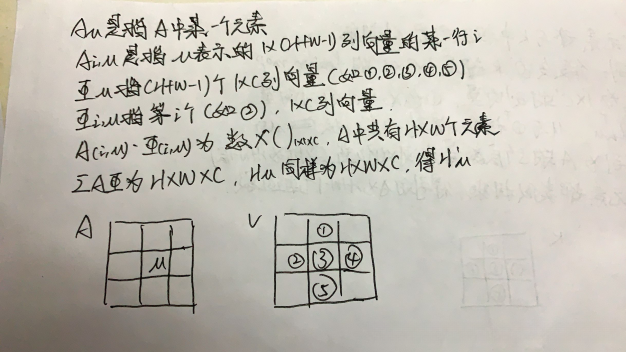 Au是指A中某一个元素
Ai,u是指u表示的1×(H+W-1)列向量的某一行i
亚u指(H+W-1)个1×C列向量(如①,②,③,④,⑤)
亚i,u指第i个(如②),1×C列向量.
A(i,u)·亚(i,u)为 数×()1×1×C,A中共有H×W个元素
ΣA亚为H×W×C,Hu同样为H×W×C,得H'u
A V
①
u ② ③ ④
⑤